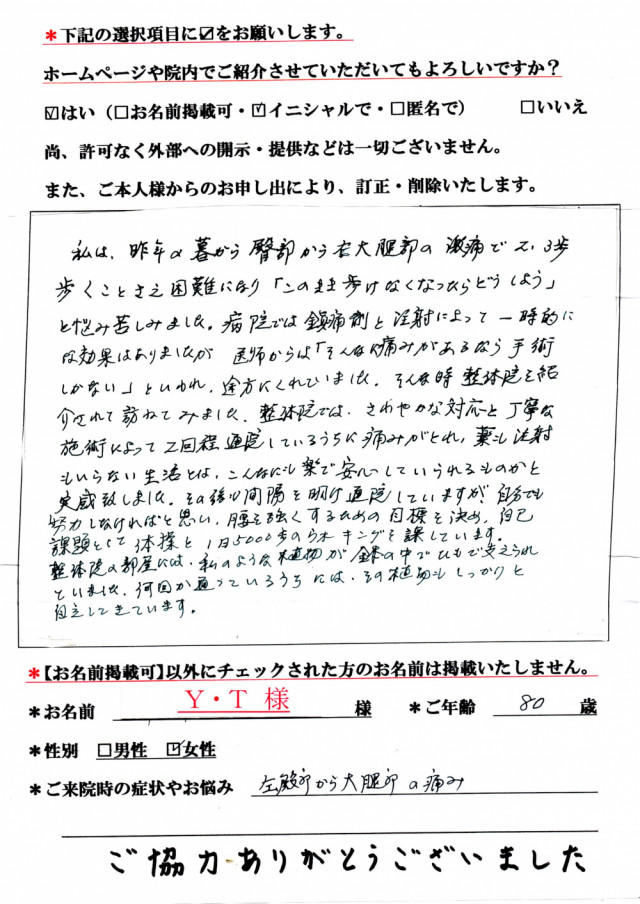 *下記の選択項目に☑をお願いします。
ホームページや院内でご紹介させていただいてもよろしいですか？
☑はい（□お名前掲載可・☑イニシャルで・□匿名で）　□いいえ
尚、許可なく外部への開示・提供などは一切ございません。
また、ご本人様からのお申し出により、訂正・削除いたします。
私は、昨年の暮から臀部から右大腿部の激痛で2、3歩
歩くことさえ困難になり「このまま歩けなくなったらどうしよう」
と悩み苦しみました。病院では鎮痛剤と注射によって一時的に
は効果はありましたが 医師からは「そんなに痛みがあるなら手術
しかない」といわれ、途方にくれていました。そんな時整体院を紹
介されて訪ねてみました。整体院では、さわやかな対応と丁寧な
施術によって2回程通院しているうちに痛みがとれ、薬も注射
もいらない生活とは、こんなにも楽で安心していられるものかと
実感致しました。その後も間隔を明け通院していますが自分でも
努力しなければと思い、腰を強くするための目標を決め、自己
課題として体操と1日5000歩のウォーキングを課しています。
整体院の部屋には、私のような植物が鉢の中でひもで支えられ
ていました。何回か通っているうちには、その植物もしっかりと
自立してきています。
*【お名前掲載可】以外にチェックされた方のお名前は掲載いたしません。
*お名前　Y・T 様　様　*ご年齢　80　歳
*性別　□男性　☑女性
*ご来院時の症状やお悩み　左臀部から大腿部の痛み
ご協力ありがとうございました